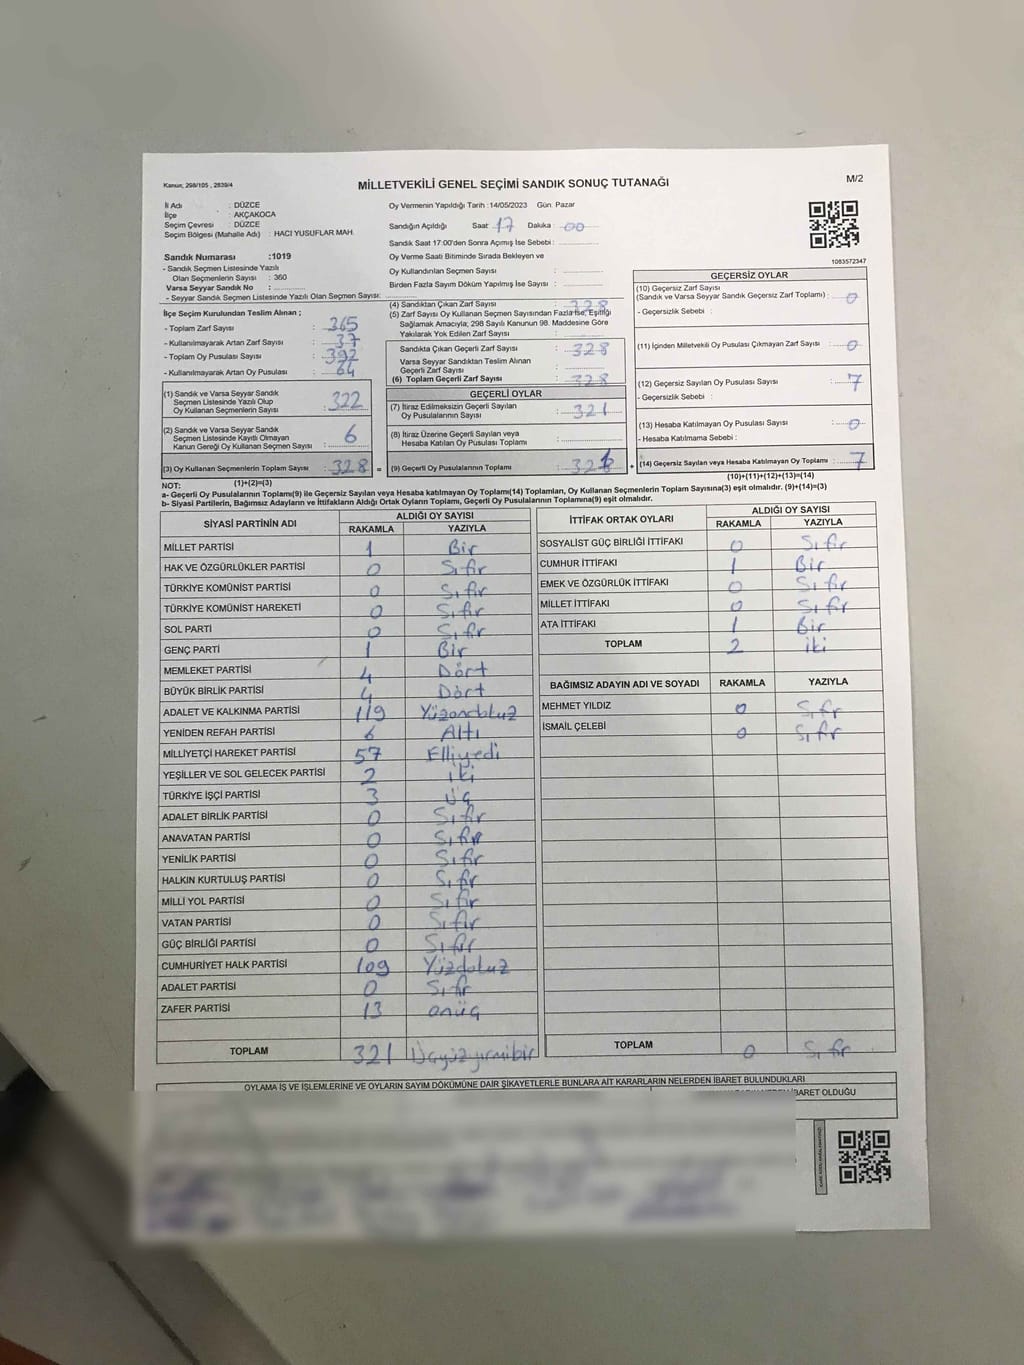 Kanun; 298/105 , 2839/4
MİLLETVEKİLİ GENEL SEÇİMİ SANDIK SONUÇ TUTANAĞI
M/2
İl Adı : DÜZCE
İlçe : AKÇAKOCA
Seçim Çevresi : DÜZCE
Seçim Bölgesi (Mahalle Adı) : HACI YUSUFLAR MAH.
Oy Vermenin Yapıldığı Tarih :14/05/2023 Gün: Pazar
Sandığın Açıldığı Saat 17 Dakika :00
Sandık Saat 17:00'den Sonra Açımış İse Sebebi :
Sandık Numarası :1019
- Sandık Seçmen Listesinde Yazılı
Olan Seçmenlerin Sayısı : 360
Varsa Seyyar Sandık No :
- Seyyar Sandık Seçmen Listesinde Yazılı Olan Seçmen Sayısı:
Oy Verme Saati Bitiminde Sırada Bekleyen ve
Oy Kullandırılan Seçmen Sayısı :
Birden Fazla Sayım Döküm Yapılmış İse Sayısı :
1083572347
İlçe Seçim Kurulundan Teslim Alınan ;
- Toplam Zarf Sayısı : 365
- Kullanılmayarak Artan Zarf Sayısı : 37
- Toplam Oy Pusulası Sayısı : 392
- Kullanılmayarak Artan Oy Pusulası : 64
(1) Sandık ve Varsa Seyyar Sandık
Seçmen Listesinde Yazılı Olup
Oy Kullanan Seçmenlerin Sayısı : 322
(2) Sandık ve Varsa Seyyar Sandık
Seçmen Listesinde Kayıtlı Olmayan
Kanun Gereği Oy Kullanan Seçmen Sayısı : 6
(3) Oy Kullanan Seçmenlerin Toplam Sayısı : 328 =
(1)+(2)=(3)
(4) Sandıktan Çıkan Zarf Sayısı : 328
(5) Zarf Sayısı Oy Kullanan Seçmen Sayısından Fazla İse, Eşitliği
Sağlamak Amacıyla; 298 Sayılı Kanunun 98. Maddesine Göre
Yakılarak Yok Edilen Zarf Sayısı :
Sandıkta Çıkan Geçerli Zarf Sayısı : 328
Varsa Seyyar Sandıktan Teslim Alınan
Geçerli Zarf Sayısı :
(6) Toplam Geçerli Zarf Sayısı : 328
GEÇERLİ OYLAR
(7) İtiraz Edilmeksizin Geçerli Sayılan
Oy Pusulalarının Sayısı : 321
(8) İtiraz Üzerine Geçerli Sayılan veya
Hesaba Katılan Oy Pusulası Toplamı :
(9) Geçerli Oy Pusulalarının Toplamı : 321 +
GEÇERSİZ OYLAR
(10) Geçersiz Zarf Sayısı
(Sandık ve Varsa Seyyar Sandık Geçersiz Zarf Toplamı) : 0
- Geçersizlik Sebebi :
(11) İçinden Milletvekili Oy Pusulası Çıkmayan Zarf Sayısı : 0
(12) Geçersiz Sayılan Oy Pusulası Sayısı : 7
- Geçersizlik Sebebi :
(13) Hesaba Katılmayan Oy Pusulası Sayısı : 0
- Hesaba Katılmama Sebebi :
(14) Geçersiz Sayılan veya Hesaba Katılmayan Oy Toplamı : 7
(10)+(11)+(12)+(13)=(14)
NOT:
a- Geçerli Oy Pusulalarının Toplamı(9) ile Geçersiz Sayılan veya Hesaba katılmayan Oy Toplamı(14) Toplamları, Oy Kullanan Seçmenlerin Toplam Sayısına(3) eşit olmalıdır. (9)+(14)=(3)
b- Siyasi Partilerin, Bağımsız Adayların ve İttifakların Aldığı Oyların Toplamı, Geçerli Oy Pusulalarının Toplamına(9) eşit olmalıdır.
SİYASİ PARTİNİN ADI ALDIĞI OY SAYISI
RAKAMLA YAZIYLA
MİLLET PARTİSİ 1 Bir
HAK VE ÖZGÜRLÜKLER PARTİSİ 0 Sıfır
TÜRKİYE KOMÜNİST PARTİSİ 0 Sıfır
TÜRKİYE KOMÜNİST HAREKETİ 0 Sıfır
SOL PARTİ 0 Sıfır
GENÇ PARTİ 1 Bir
MEMLEKET PARTİSİ 4 Dört
BÜYÜK BİRLİK PARTİSİ 4 Dört
ADALET VE KALKINMA PARTİSİ 119 Yüzondokuz
YENİDEN REFAH PARTİSİ 6 Altı
MİLLİYETÇİ HAREKET PARTİSİ 57 Elliyedi
YEŞİLLER VE SOL GELECEK PARTİSİ 2 iki
TÜRKİYE İŞÇİ PARTİSİ 3 Üç
ADALET BİRLİK PARTİSİ 0 Sıfır
ANAVATAN PARTİSİ 0 Sıfır
YENİLİK PARTİSİ 0 Sıfır
HALKIN KURTULUŞ PARTİSİ 0 Sıfır
MİLLİ YOL PARTİSİ 0 Sıfır
VATAN PARTİSİ 0 Sıfır
GÜÇ BİRLİĞİ PARTİSİ 0 Sıfır
CUMHURİYET HALK PARTİSİ 109 Yüzdokuz
ADALET PARTİSİ 0 Sıfır
ZAFER PARTİSİ 13 onüç
TOPLAM 321 Üçyüzyirmibir
İTTİFAK ORTAK OYLARI ALDIĞI OY SAYISI
RAKAMLA YAZIYLA
SOSYALİST GÜÇ BİRLİĞİ İTTİFAKI 0 Sıfır
CUMHUR İTTİFAKI 1 Bir
EMEK VE ÖZGÜRLÜK İTTİFAKI 0 Sıfır
MİLLET İTTİFAKI 0 Sıfır
ATA İTTİFAKI 1 Bir
TOPLAM 2 iki
BAĞIMSIZ ADAYIN ADI VE SOYADI RAKAMLA YAZIYLA
MEHMET YILDIZ 0 Sıfır
İSMAİL ÇELEBİ 0 Sıfır
TOPLAM 0 Sıfır
OYLAMA İŞ VE İŞLEMLERİNE VE OYLARIN SAYIM DÖKÜMÜNE DAİR ŞİKAYETLERLE BUNLARA AİT KARARLARIN NELERDEN İBARET BULUNDUKLARI
İBARET OLDUĞU